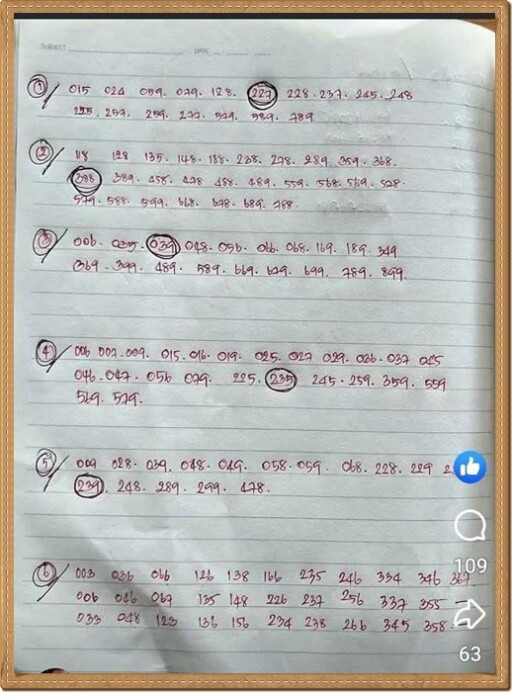 SUBJECT DATE
1 015 024 059. 079. 128. 227 228. 237. 245. 248
225. 257. 259. 277. 579. 589. 789
2 118 128 135. 148. 188. 238. 278. 289 359. 368.
388 389. 458. 478 488. 489. 559. 568. 569. 578.
579. 588. 599. 668. 678. 689. 788.
3 006. 035. 039 048. 056. 066. 068. 169. 189. 349
369. 399. 489. 589. 669. 679. 699. 789. 899.
4 006 007. 009. 015. 016. 019. 025. 027 029. 036. 037 045
046. 047. 056 079. 225. 235 245. 259. 359. 559
569. 579.
5 009 028. 039. 048. 049. 058. 059. 068. 228. 229
239. 248. 289. 299. 478.
6 003 036 066 126 138 166 235 246 334 346 367
006 046 067 135 148 226 237 256 337 355
033 048 123 136 156 234 238 266 345 358.
109
63